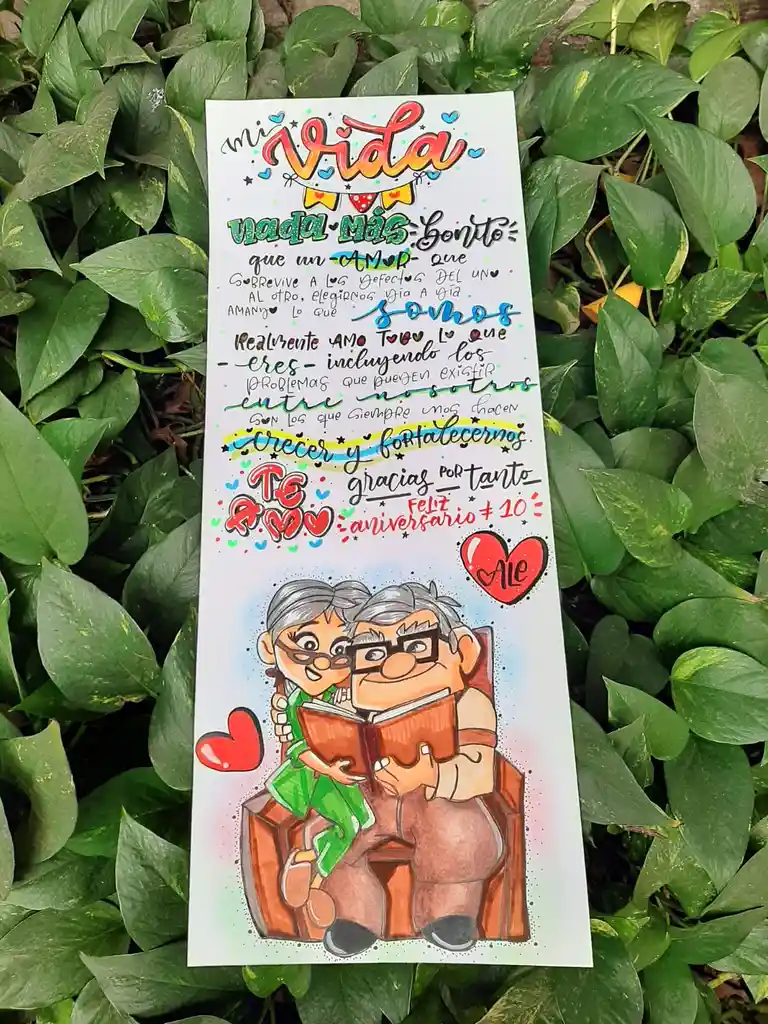 mi Vida
nada más bonito
que un AMOR que
SOBREVIVE A LOS DEFECTOS DEL UNO
AL OTRO, ELEGIRNOS DIA A DIA
AMANDO LO QUE somos
REALMENTE AMO TODO LO QUE
- eres - incluyendo los
PROBLEMAS QUE PUEDEN EXISTIR
entre nosotros
SON LOS QUE SIEMPRE NOS HACEN
crecer y fortalecernos.
TE AMO
gracias POR tanto
FELIZ
aniversario # 10
ALE